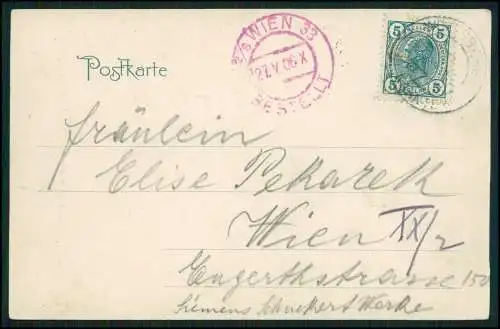 WIEN 33
27.V.06.X
BESTELLT
5 5
5 5
Postkarte
Fräulein
Elise Pekarek
Wien XX/2
Engerthstrasse 150
Siemens Schuckert Werke